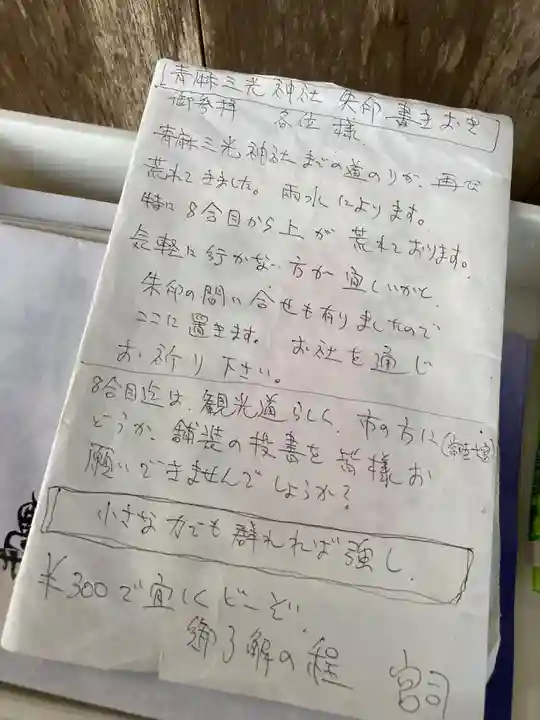 青麻三光神社 朱印 書きおき
御参拝 各位 様.
青麻三光神社 までの道のりが、再び
荒れてきました。 雨水によります。
特に 8合目から上が 荒れております。
気軽に行かない方が 宜しいかと、
朱印の問い合せも有りましたので
ここに置きます。 お社を通じ
お祈り下さい。
8合目迄は、観光道らしく、市の方に
どうか、舗装の投書を 皆様お
願いできませんでしょうか?
小さな力でも 群れれば強し.
¥300で宜しくどーぞ.
御了解の程 宮司